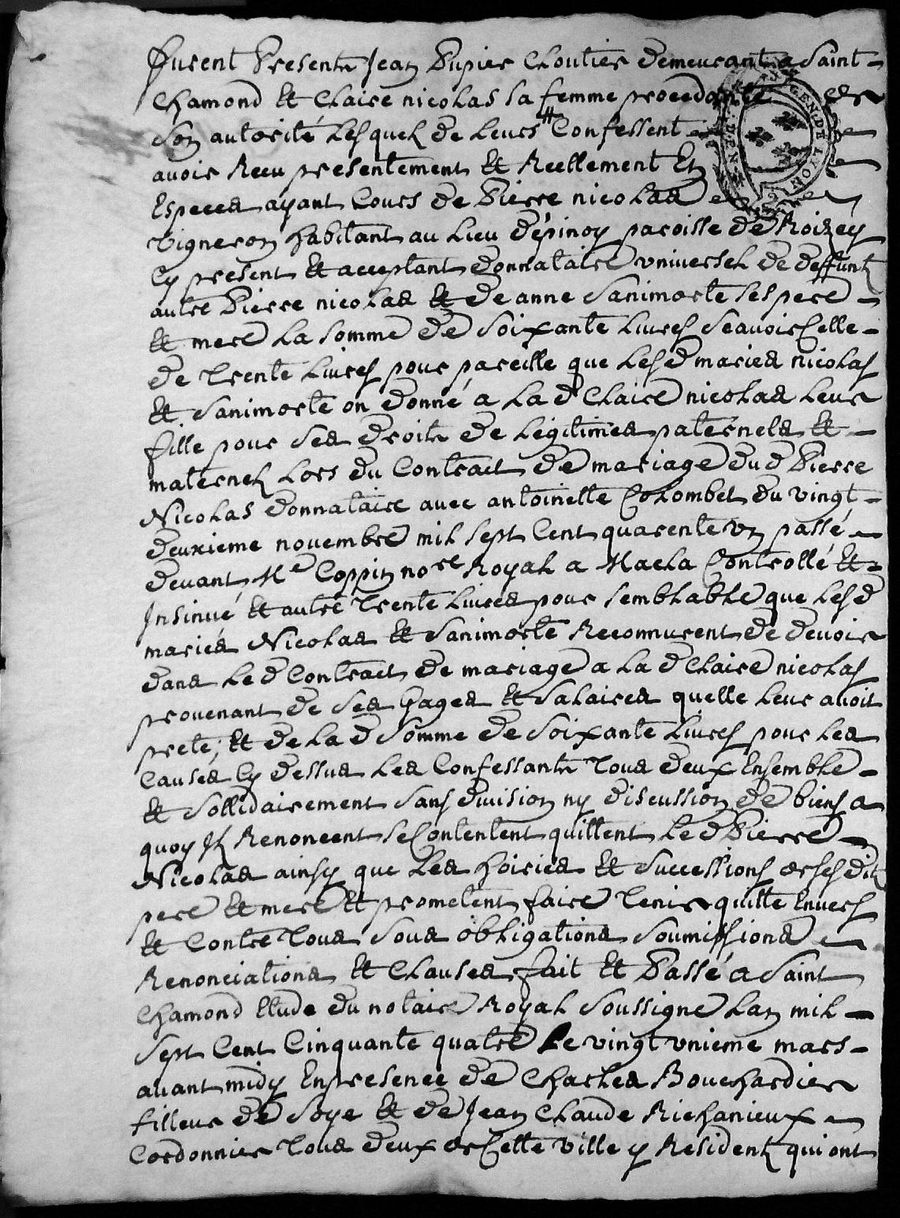 furent Presents Jean Pupier Cloutier demeurant a Saint
Chamond et Claire nicolas sa femme procedante de
son autorité Lesquels de Leurs Confessent
GEN. DE LYON
avoir Receu presentement et Reellement En
Especes ayant Cours de Pierre nicolas
vigneron habitant au Lieu d'épinoy paroisse de Roizey
Cy present et acceptant donnataire universel de deffunt
autre Pierre nicolas et de anne Sanimorte ses pere
et mere La Somme de Soixante Livres Scavoir Celle
de Trente Livres pour pareille que Lesd maries nicolas
et Sanimorte on donné a La d Claire nicolas Leur
fille pour ses droits de Legitimes paternels et
maternels Lors du Contract de mariage dud Pierre
Nicolas donnataire avec antoinette Colombet du vingt
deuxieme novembre mil sept Cent quarente un passé
devant Me Coppin nore Royal a Macla Controllé et
Insinué et autre Trente Livres pour semblable que Lesd
mariés Nicolas et Sanimorte Reconnurent de devoir
dans Led Contract de mariage a La d Claire nicolas
provenant de ses Gages et Salaires quelle Leur avoit
preté, et de La d Somme de Soixante Livres pour Les
Causes Cy dessus Les Confessants Tous deux Ensemble
et Sollidairement sans division ny discussion de biens a
quoy Ils Renoncent se Contentent quittent Led Pierre
Nicolas ainsy que Les hoiries et Successions de sesdits
pere et mere et promettent faire Tenir quitte Envers
et Contre Tous sous obligations Soumissions
Renonciations et Clauses fait et Passé a Saint
Chamond Etude du notaire Royal Soussigné Lan mil
Sept Cent Cinquante quatre Le vingt unieme mars
avant midy En presence de Charles Bouchardier
filleur de Soye et de Jean Claude Richanieux
Cordonnier Tous deux de Cette ville y Residents qui ont